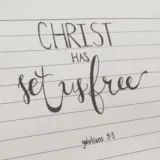 CHRIST
HAS
set us free
galatians 5:1